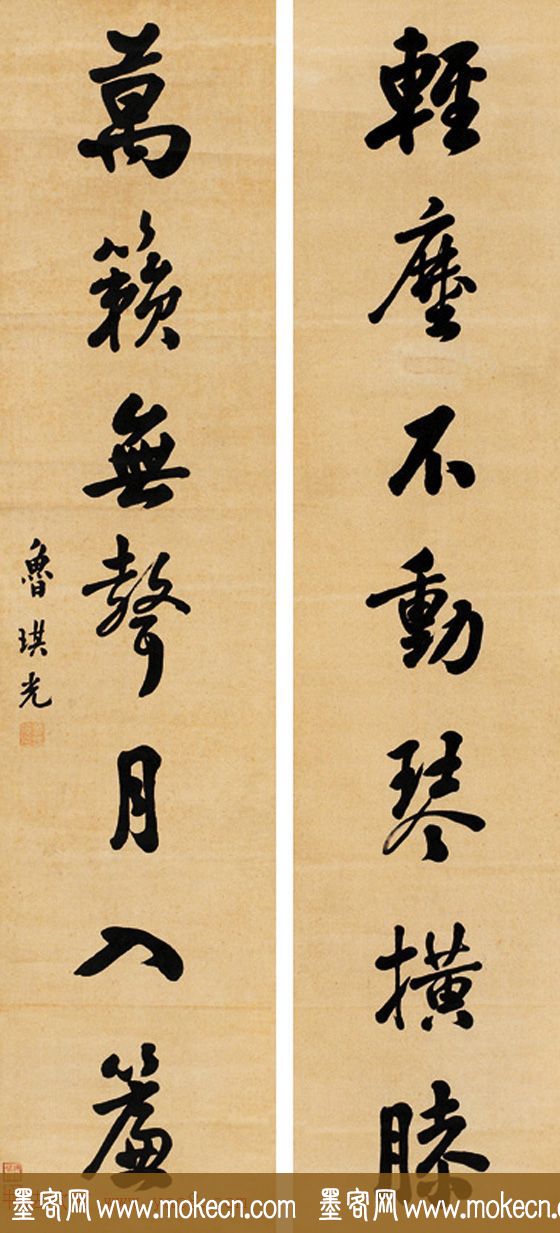 輕塵不動琴橫膝
萬籟無聲月入簾
魯琪光
墨客网 www.mokecn.com
墨客网 www.mokecn.com